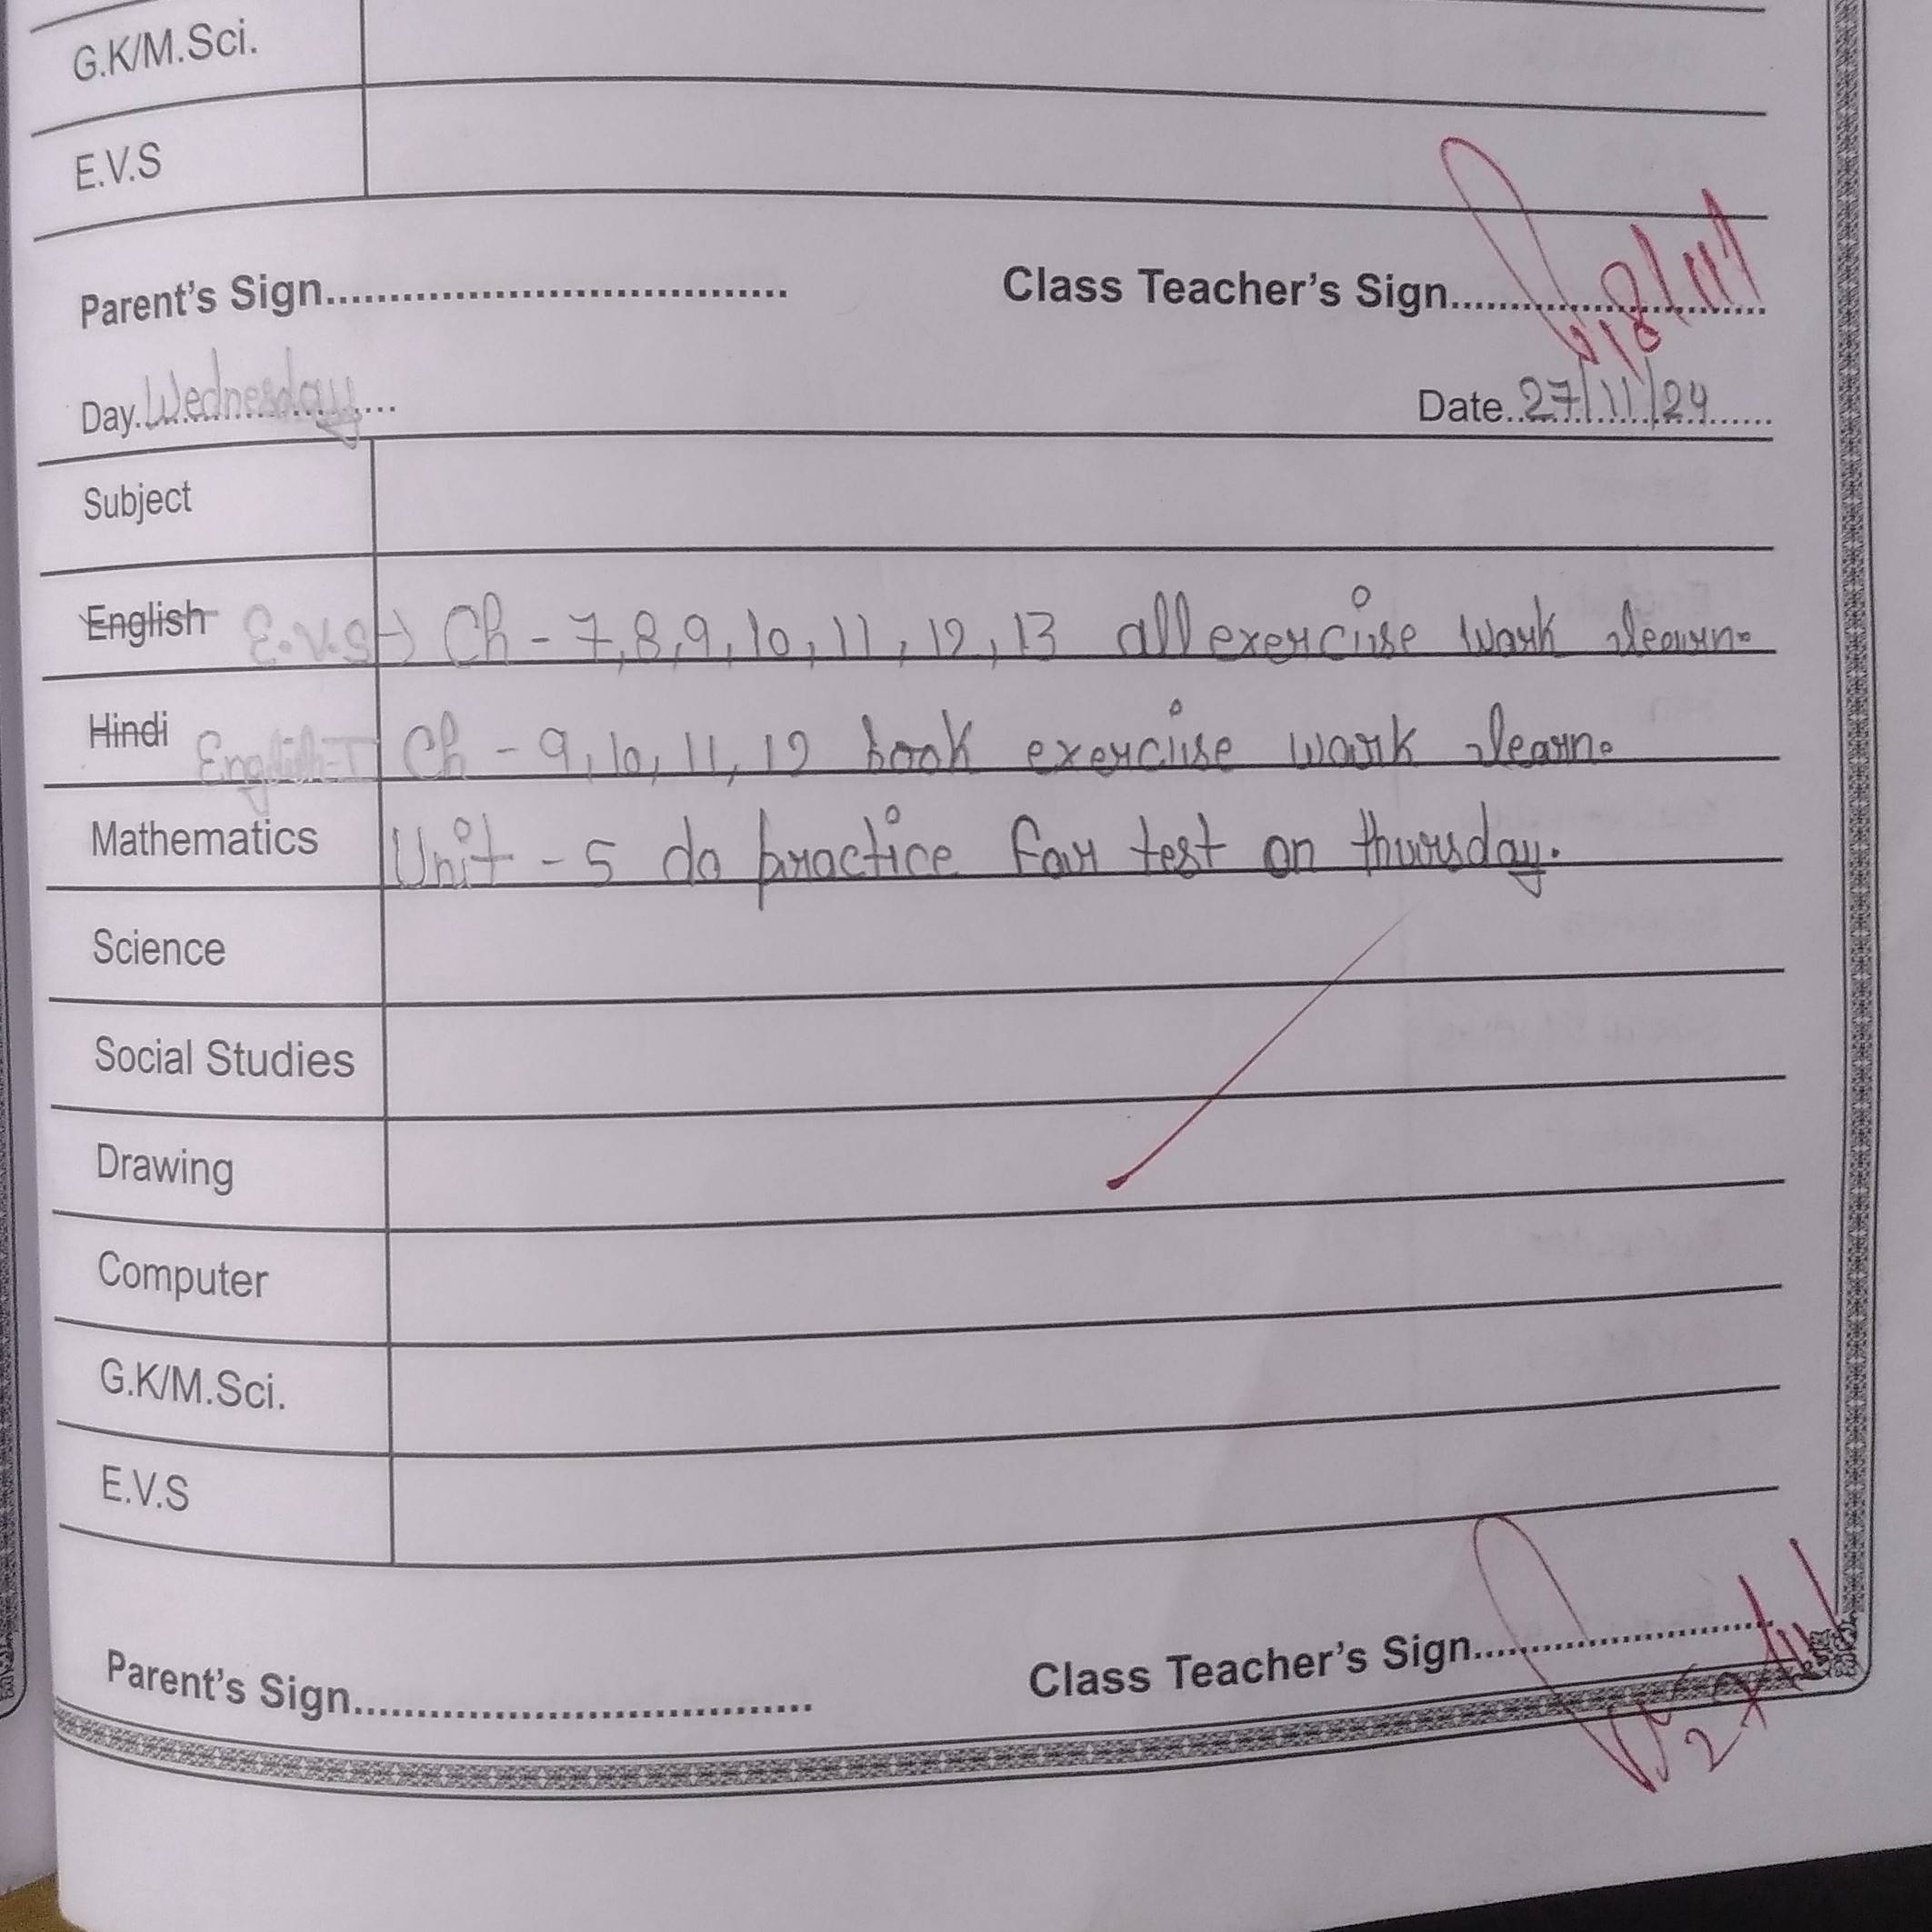 G.K/M.Sci.
E.V.S
Parent's Sign.................................... Class Teacher's Sign.........................
Day.Wednesday... Date..27/11/24......
Subject
English E.V.S → Ch - 7,8,9,10,11,12,13 all exercise work learn.
Hindi English-I Ch - 9,10,11,12 book exercise work learn.
Mathematics Unit - 5 do practice for test on thursday.
Science
Social Studies
Drawing
Computer
G.K/M.Sci.
E.V.S
Parent's Sign.................................... Class Teacher's Sign.........................